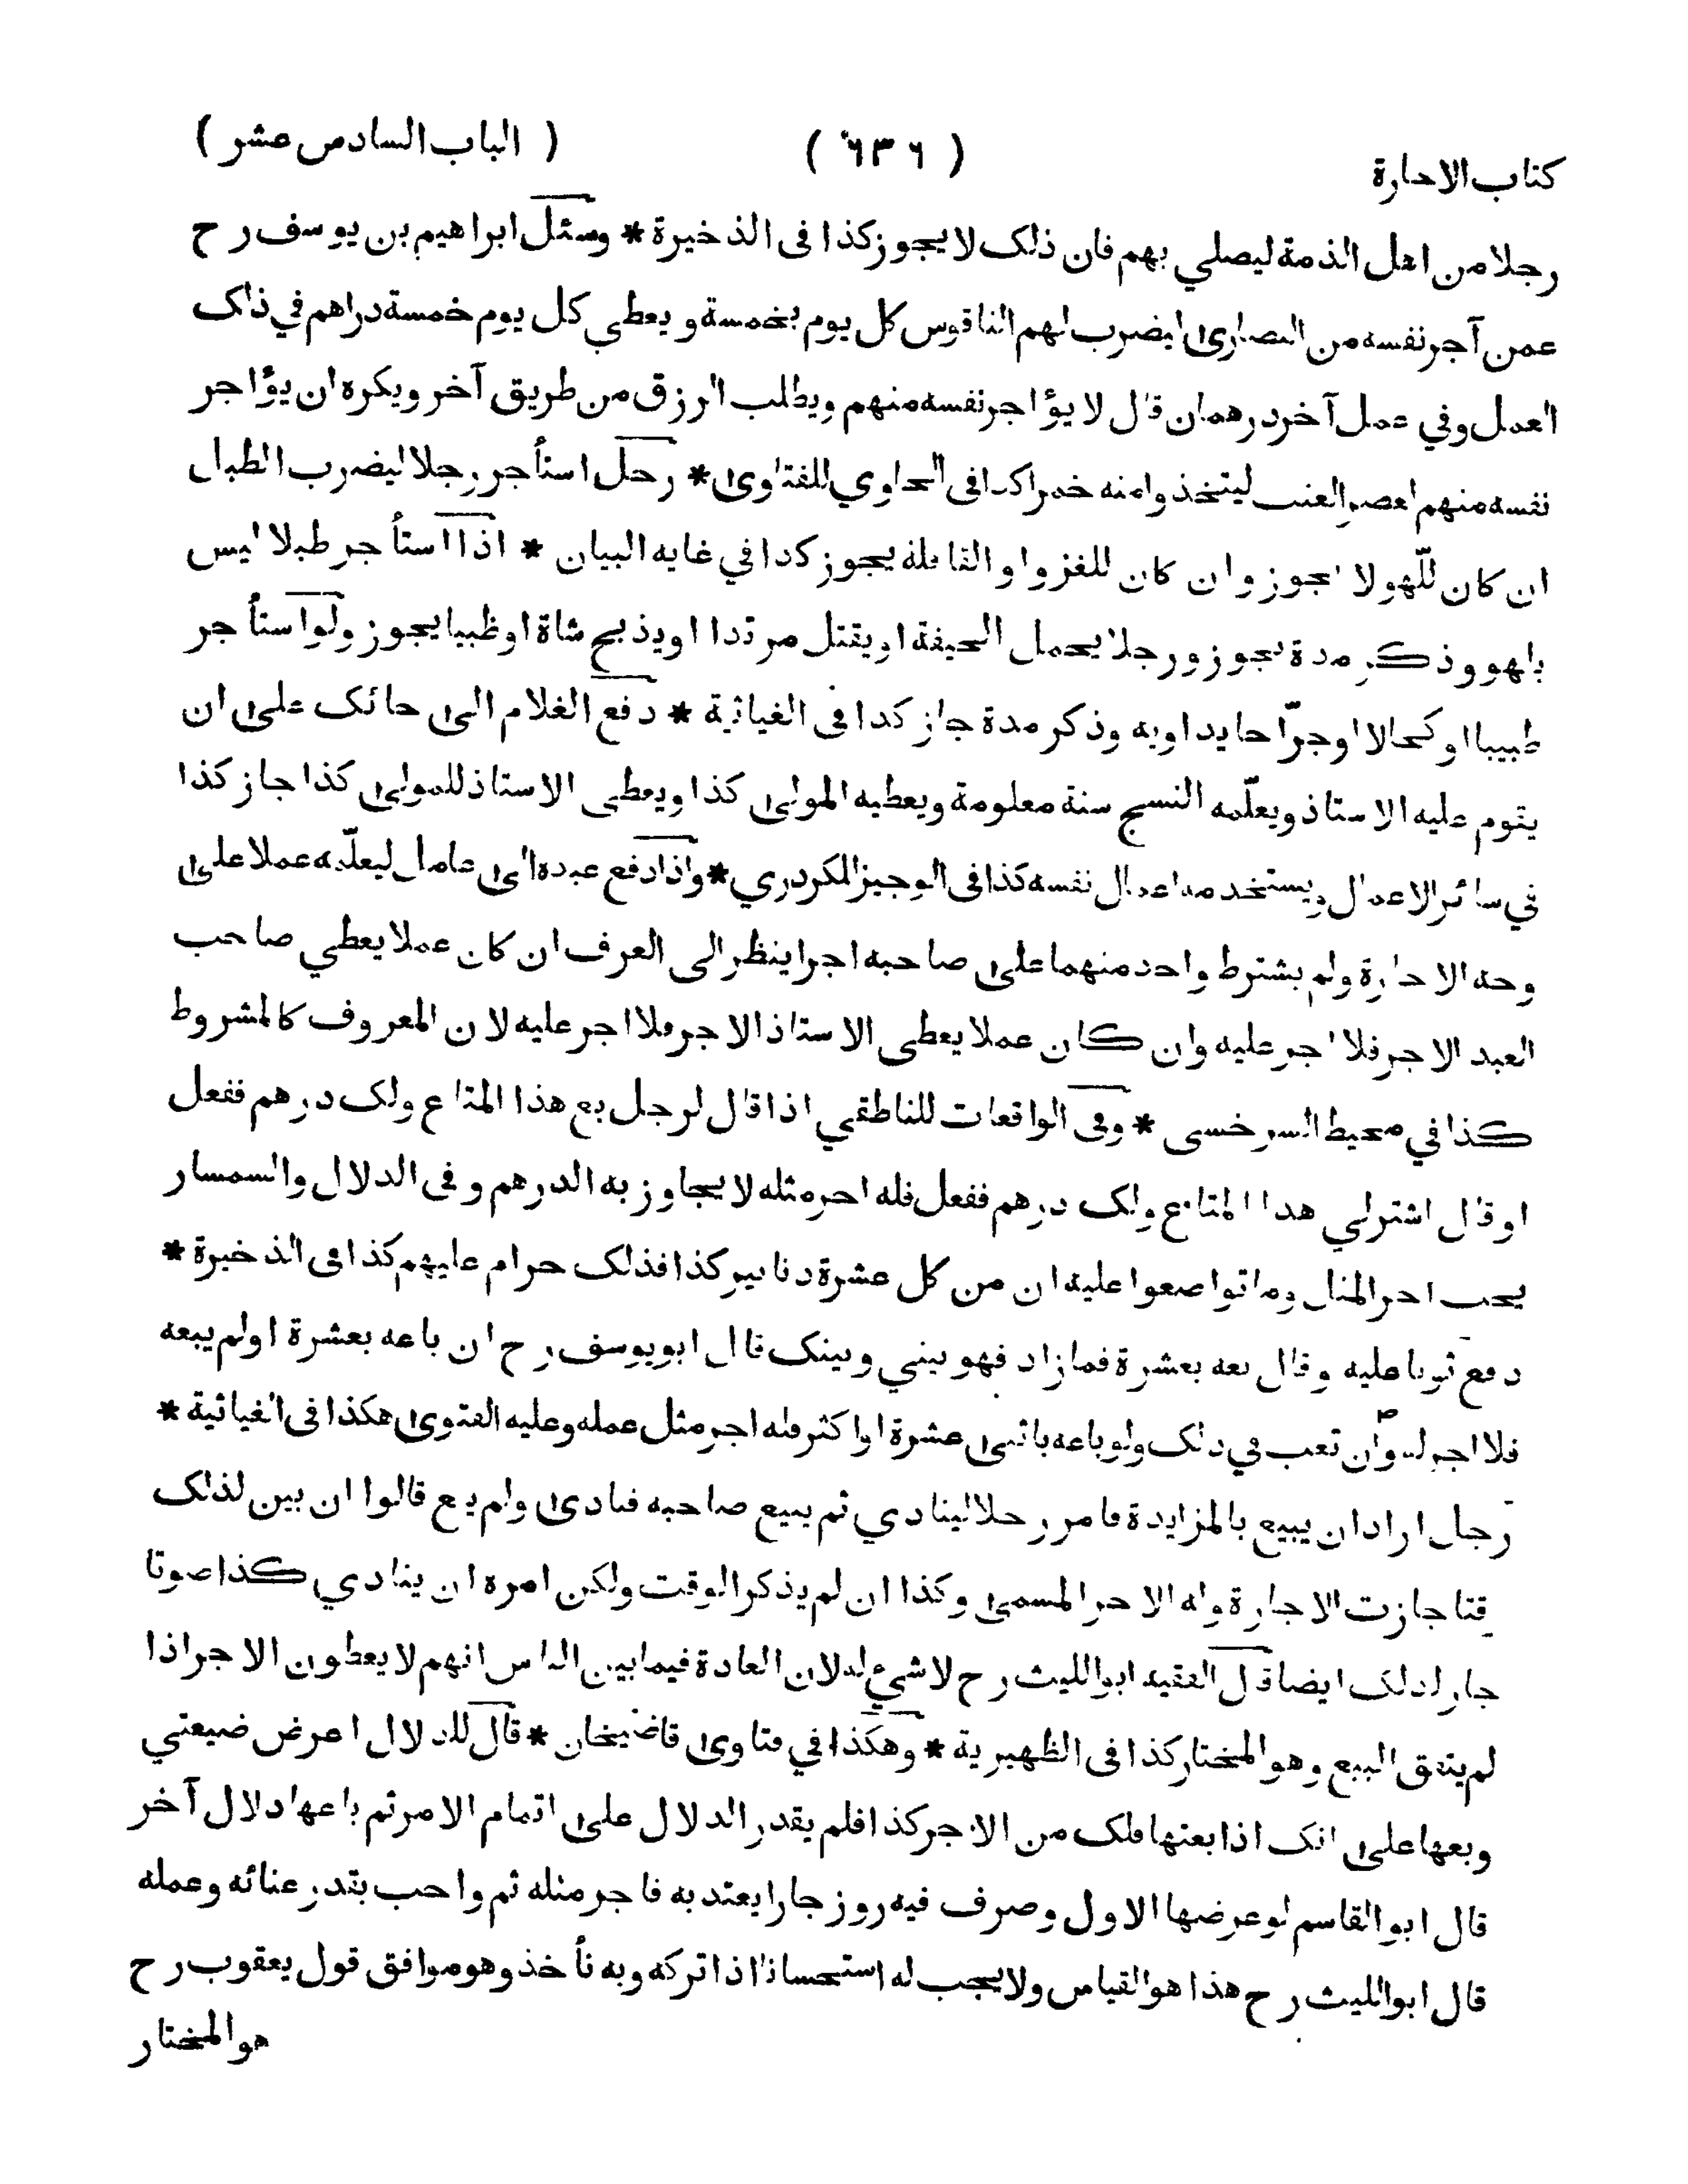 كتاب الاجارة ( ٦٣٦ ) ( الباب السادس عشر )
رجلا من اهل الذمة ليصلي بهم فان ذلك لا يجوز كذا فى الذخيرة * وسئل ابراهيم بن يوسف رح
عمن آجر نفسه من النصارى ليضرب لهم الناقوس كل يوم بخمسة ويعطى كل يوم خمسة دراهم في ذلك
العمل وفي عمل آخر درهمان قال لا يؤاجر نفسه منهم ويطلب الرزق من طريق آخر ويكره ان يؤاجر
نفسه منهم لعصر العنب ليتخذوا منه خمرا كذا فى الحاوي للفتاوى * رجل استأجر رجلا ليضرب الطبل
ان كان للّهو لا يجوز وان كان للغزو او القافلة يجوز كذا في غاية البيان * اذا استأجر طبلا ليس
بلهو وذكر مدة يجوز ورجلا يحمل الجيفة او يقتل مرتدا او يذبح شاة او ظبيا يجوز ولو استأجر
طبيبا او كحالا او جرّاحا يداويه وذكر مدة جاز كذا فى الغياثية * دفع الغلام الى حائك على ان
يقوم عليه الاستاذ ويعلّمه النسج سنة معلومة ويعطيه المولى كذا ويعطى الاستاذ للمولى كذا جاز كذا
في سائر الاعمال ويستخدمه اعمال نفسه كذا فى الوجيز للكردري * واذا دفع عبده الى عامل ليعلّمه عملا على
وجه الاجارة ولم يشترط واحد منهما على صاحبه اجرا ينظر الى العرف ان كان عملا يعطي صاحب
العبد الاجر فلا اجر عليه وان كان عملا يعطى الاستاذ الاجر فلا اجر عليه لان المعروف كالمشروط
كذا في محيط السرخسى * وفى الواقعات للناطقي اذا قال لرجل بع هذا المتاع ولك درهم ففعل
او قال اشتر لي هذا المتاع ولك درهم ففعل فله اجر مثله لا يجاوز به الدرهم وفى الدلال والسمسار
يجب اجر المثل وما تواضعوا عليه ان من كل عشرة دنانير كذا فذلك حرام عليهم كذا فى الذخيرة *
دفع ثوبا عليه وقال بعه بعشرة فما زاد فهو بيني وبينك قال ابويوسف رح ان باعه بعشرة او لم يبعه
فلا اجر له وان تعب في ذلك ولو باعه باثنى عشرة او اكثر فله اجر مثل عمله وعليه الفتوى هكذا فى الغياثية *
رجل اراد ان يبيع بالمزايدة فامر رجلا لينادي ثم يبيع صاحبه فنادى ولم يبع قالوا ان بين لذلك
وقتا جازت الاجارة وله الاجر المسمى وكذا ان لم يذكر الوقت ولكن امره ان ينادي كذا صوتا
جاز لذلك ايضا قال الفقيه ابوالليث رح لا شيء له لان العادة فيما بين الناس انهم لا يعطون الاجر اذا
لم يتفق البيع وهو المختار كذا فى الظهيرية * وهكذا في فتاوى قاضيخان * قال للدلال اعرض ضيعتي
وبعها على انك اذا بعتها فلك من الاجر كذا فلم يقدر الدلال على اتمام الامر ثم باعها دلال آخر
قال ابو القاسم لو عرضها الاول وصرف فيه روزجارا يعتد به فاجر مثله ثم واجب بقدر عنائه وعمله
قال ابوالليث رح هذا هو القياس ولا يجب له استحسانا اذا تركه وبه نأخذ وهو موافق قول يعقوب رح
هو المختار